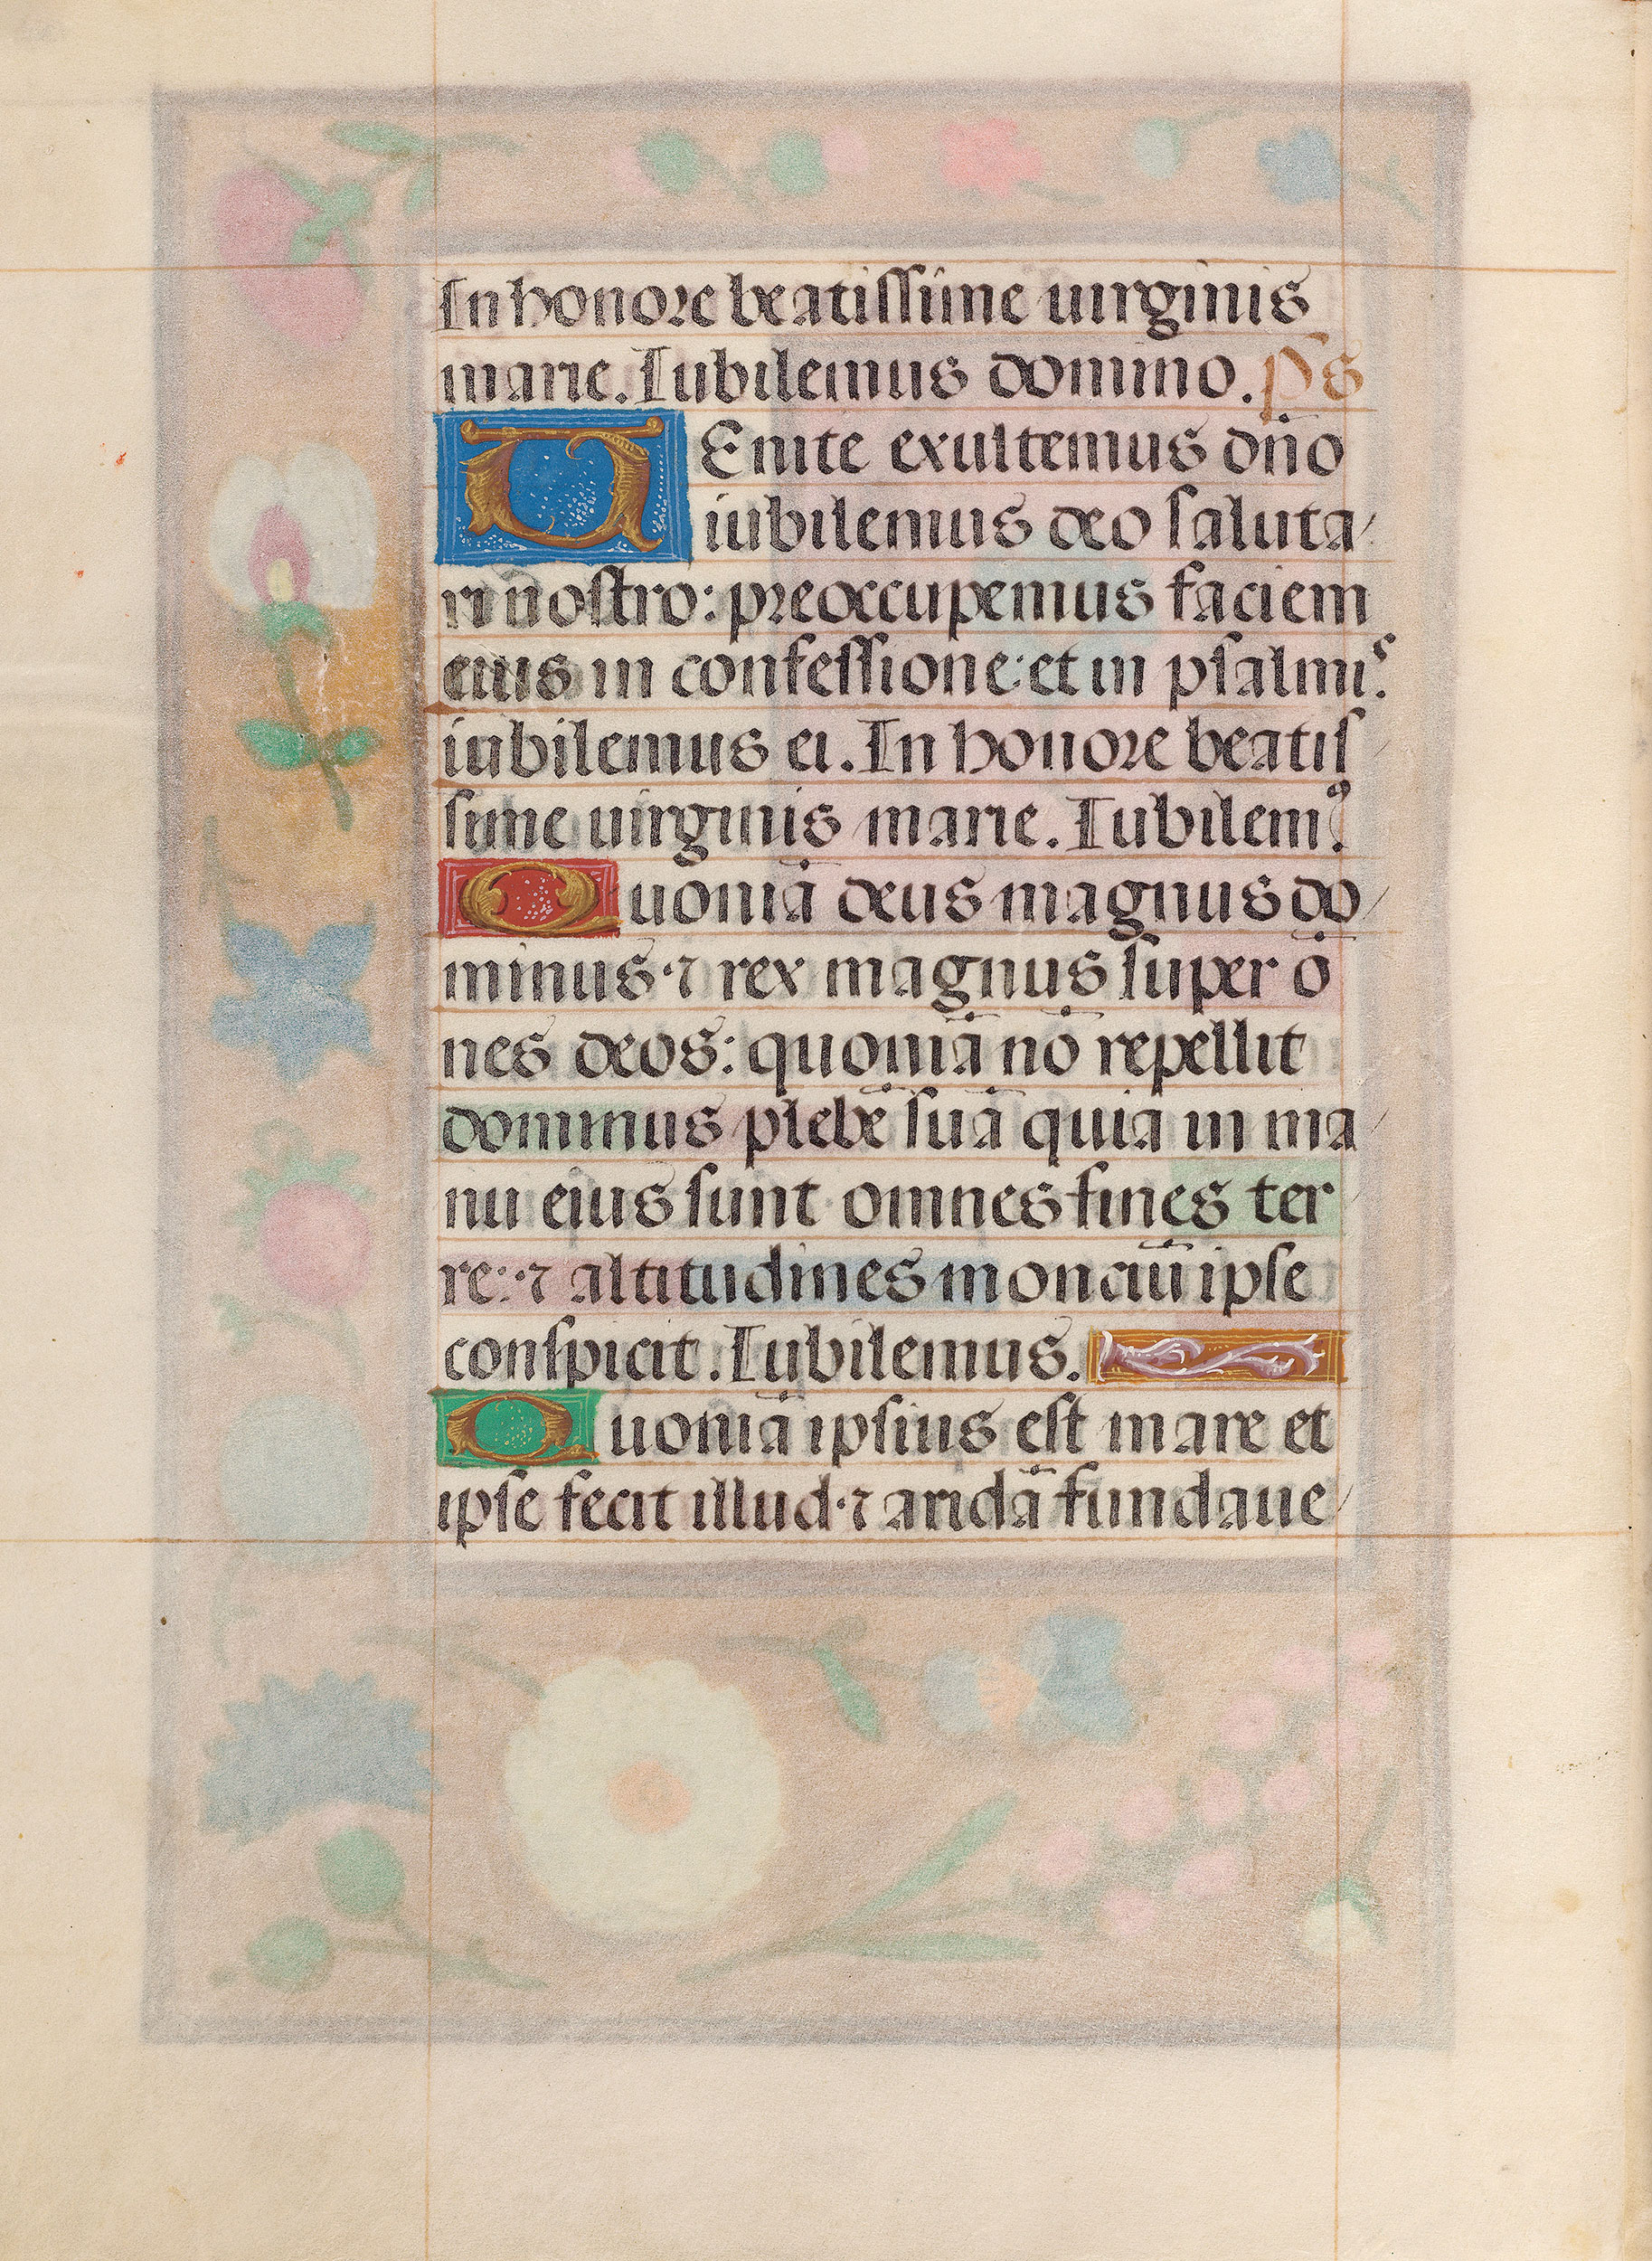 In honore beatissime uirginis
marie. Iubilemus domino. Ps
UEnite exultemus dño
iubilemus deo saluta
ri nostro: preoccupemus faciem
eius in confessione: et in psalmis.
iubilemus ei. In honore beatis
sime uirginis marie. Iubilemꝰ.
Quoniā deus magnus do
minus· ⁊ rex magnus super ō
nes deos: quoniā nō repellit
dominus plebē suā quia in ma
nu eius sunt omnes fines ter
re: ·⁊ altitudines monciū ipse
conspicit. Iubilemus.
Quoniā ipsius est mare et
ipse fecit illud· ⁊ aridā fundaue